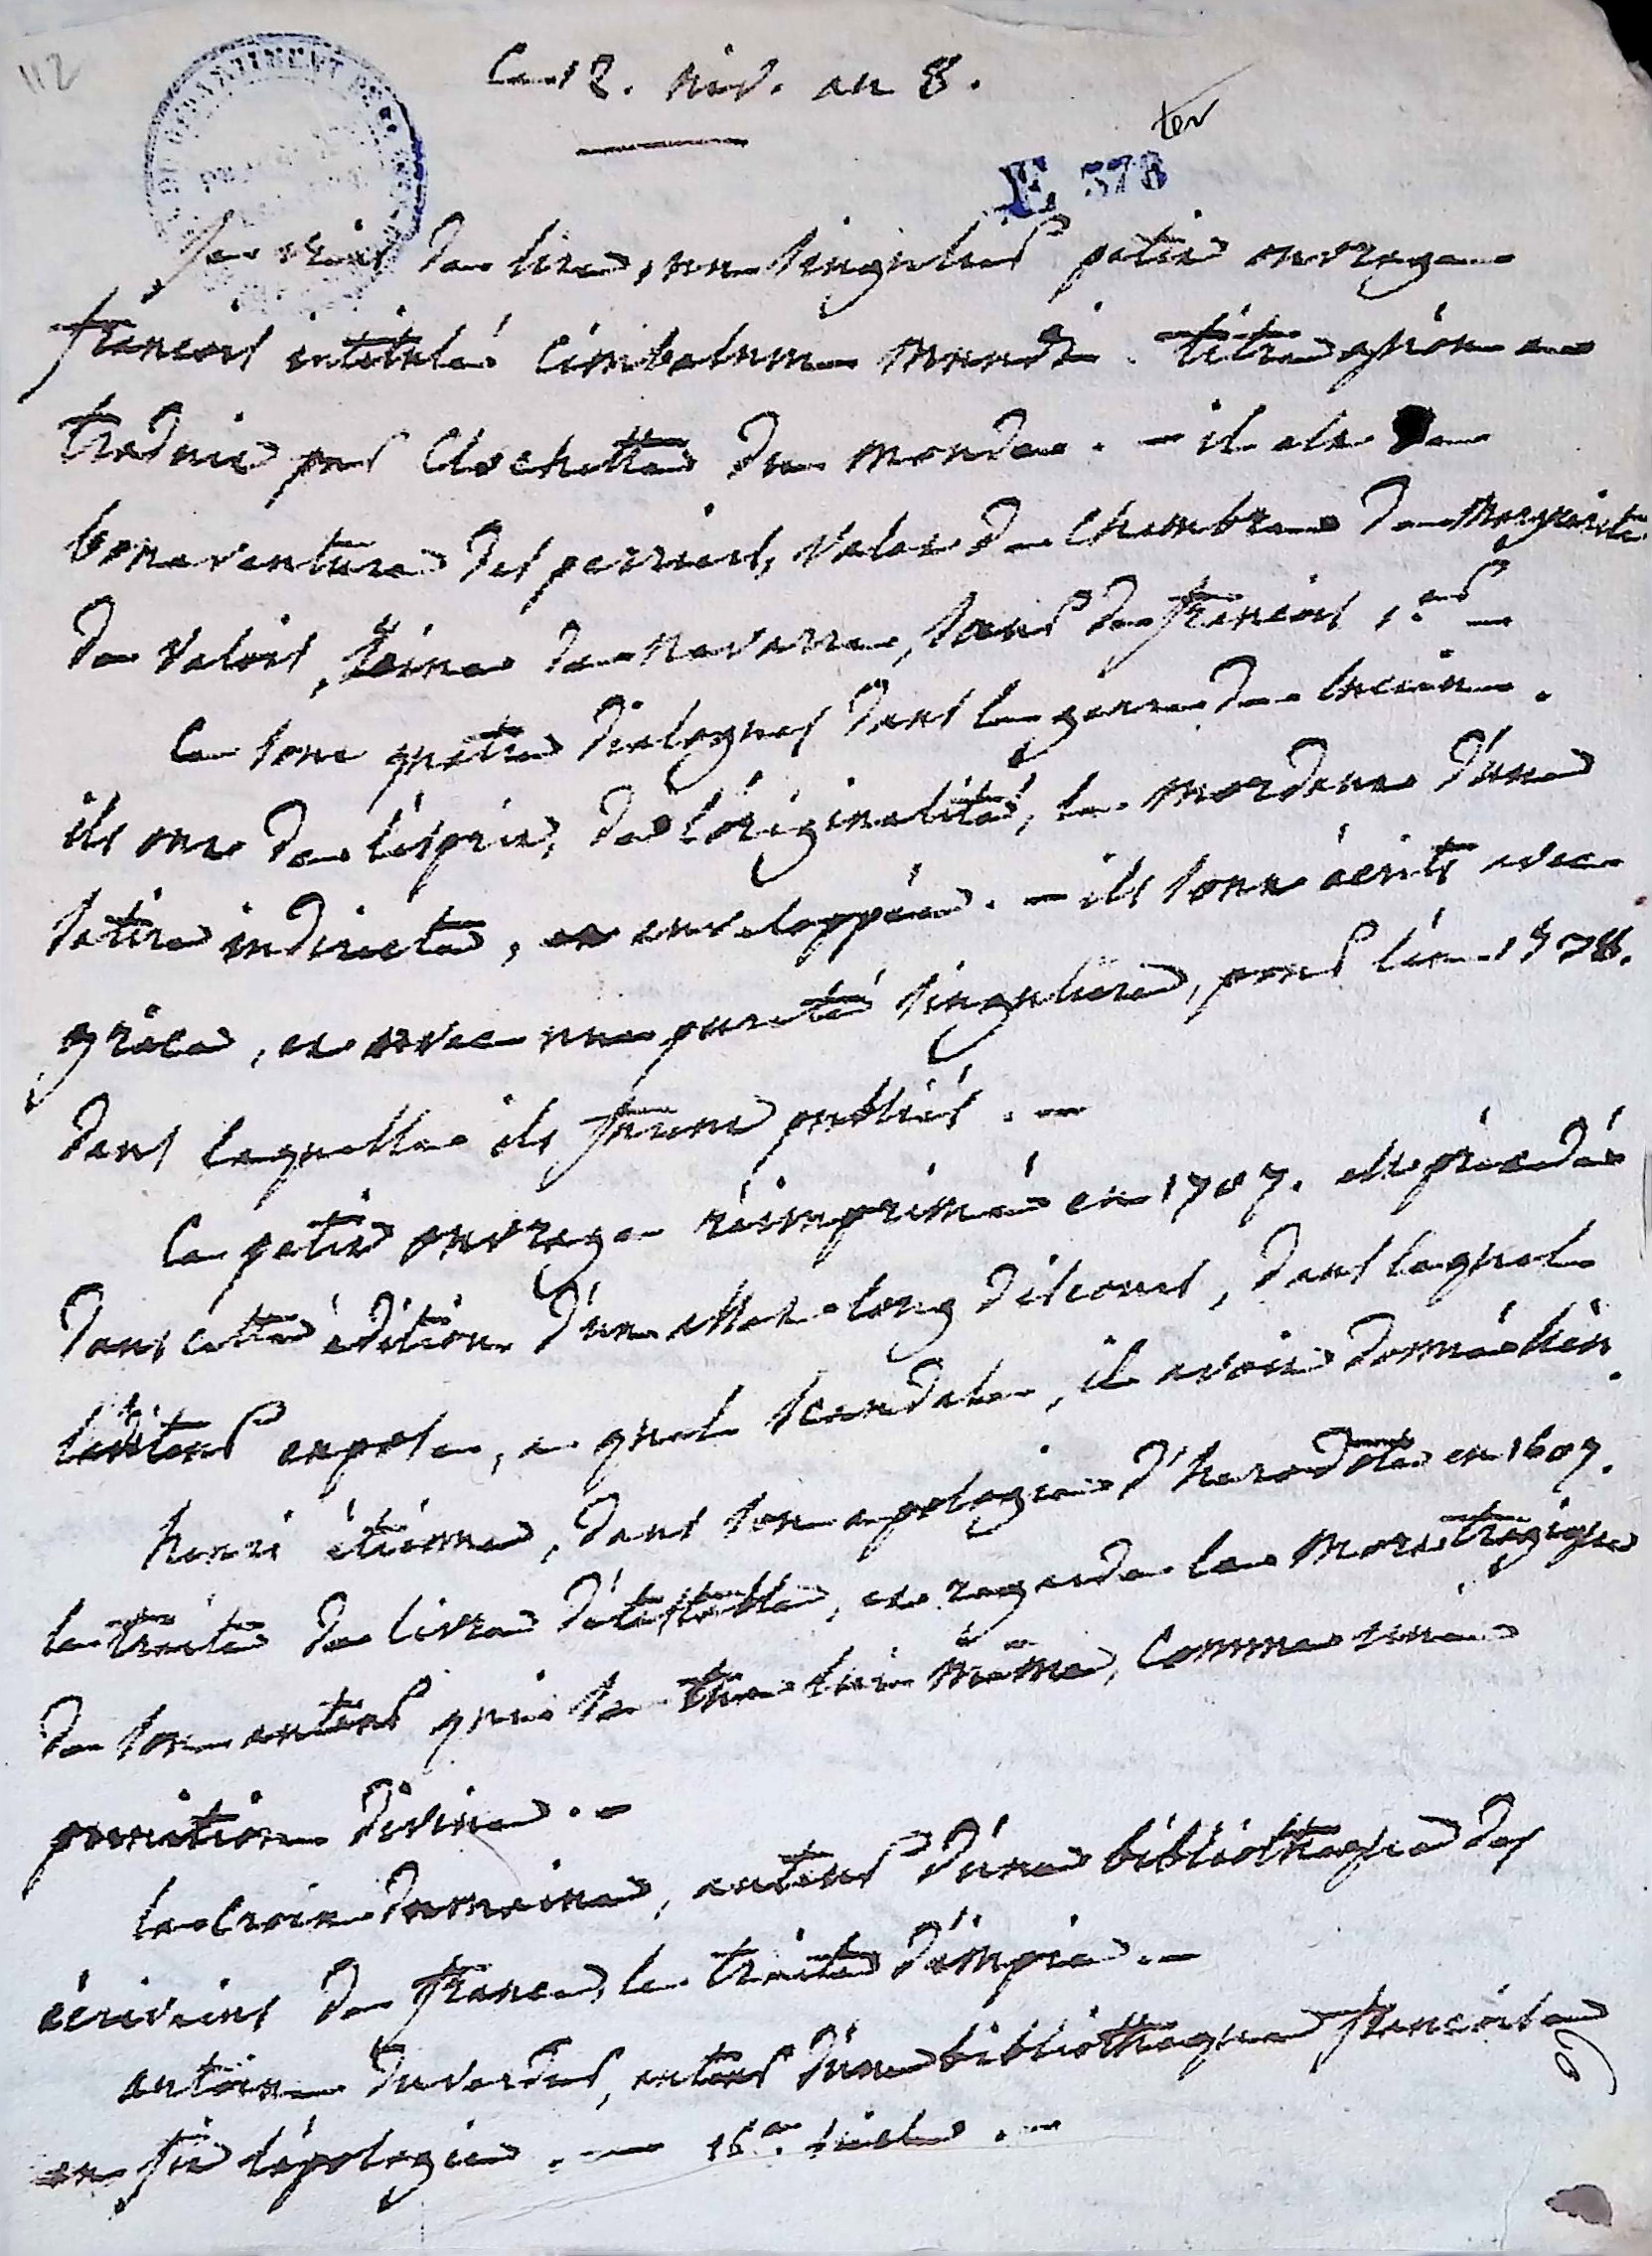 112
Ce 12. niv. an 8.
ter
E 378
Je viens de lire, un singulier petit ouvrage
françois intitulé Cimbalum mundi. titre qu'on a
traduit par Clochette du monde. – il est de
bonaventure des perriers, valet de chambre de Marguerite
de Valois, reine de navarre, soeur de françois 1.er
Ce sont quatre dialogues dans le genre de lucien.
ils ont de l'esprit, de l'originalité, le mordant d'une
satire indirecte, et enveloppée. – ils sont écrits avec
grâce, et avec une pureté singulière, pour l'an 1538.
dans laquelle ils furent publiés. –
Ce petit ouvrage réimprimé en 1707. est précédé
dans cette édition d'un assez long discours, dans lequel
l'éditeur expose, a quel scandale, il avoit donné lieu.
henri étienne, dans son apologie d'herodote en 1607.
le traite de livre détestable, et regarde la mort tragique
de son auteur qui se tua lui même, comme une
punition divine. –
la Croix dumaine, auteur d'une bibliothèque des
écrivains de france, le traite d'impie. –
antoine duverdier, auteur d'une bibliothèque françoise
en fit l'apologie. – 16.e siècle. –